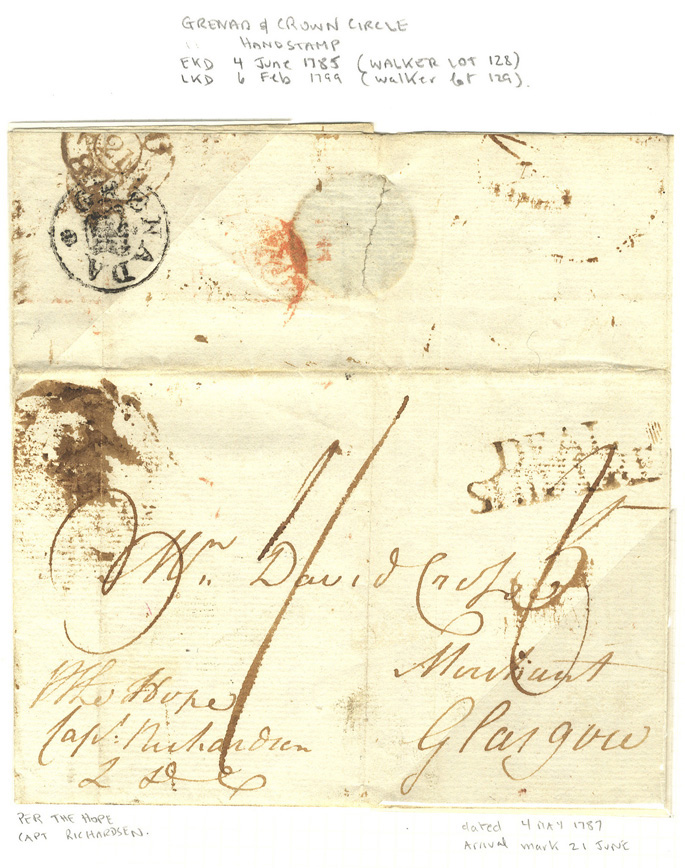 GRENADA CROWN CIRCLE
HANDSTAMP
EKD 4 June 1785 (WALKER LOT 128)
LKD 6 Feb 1799 (Walker lot 129).
GRENADA
DEAL
SHIP LRE
Mr. David
Merchant
Glasgow
The Hope
Capt. Richardson
PER THE HOPE
CAPT RICHARDSEN.
dated 4 MAY 1787
Arrival mark 21 JUNE